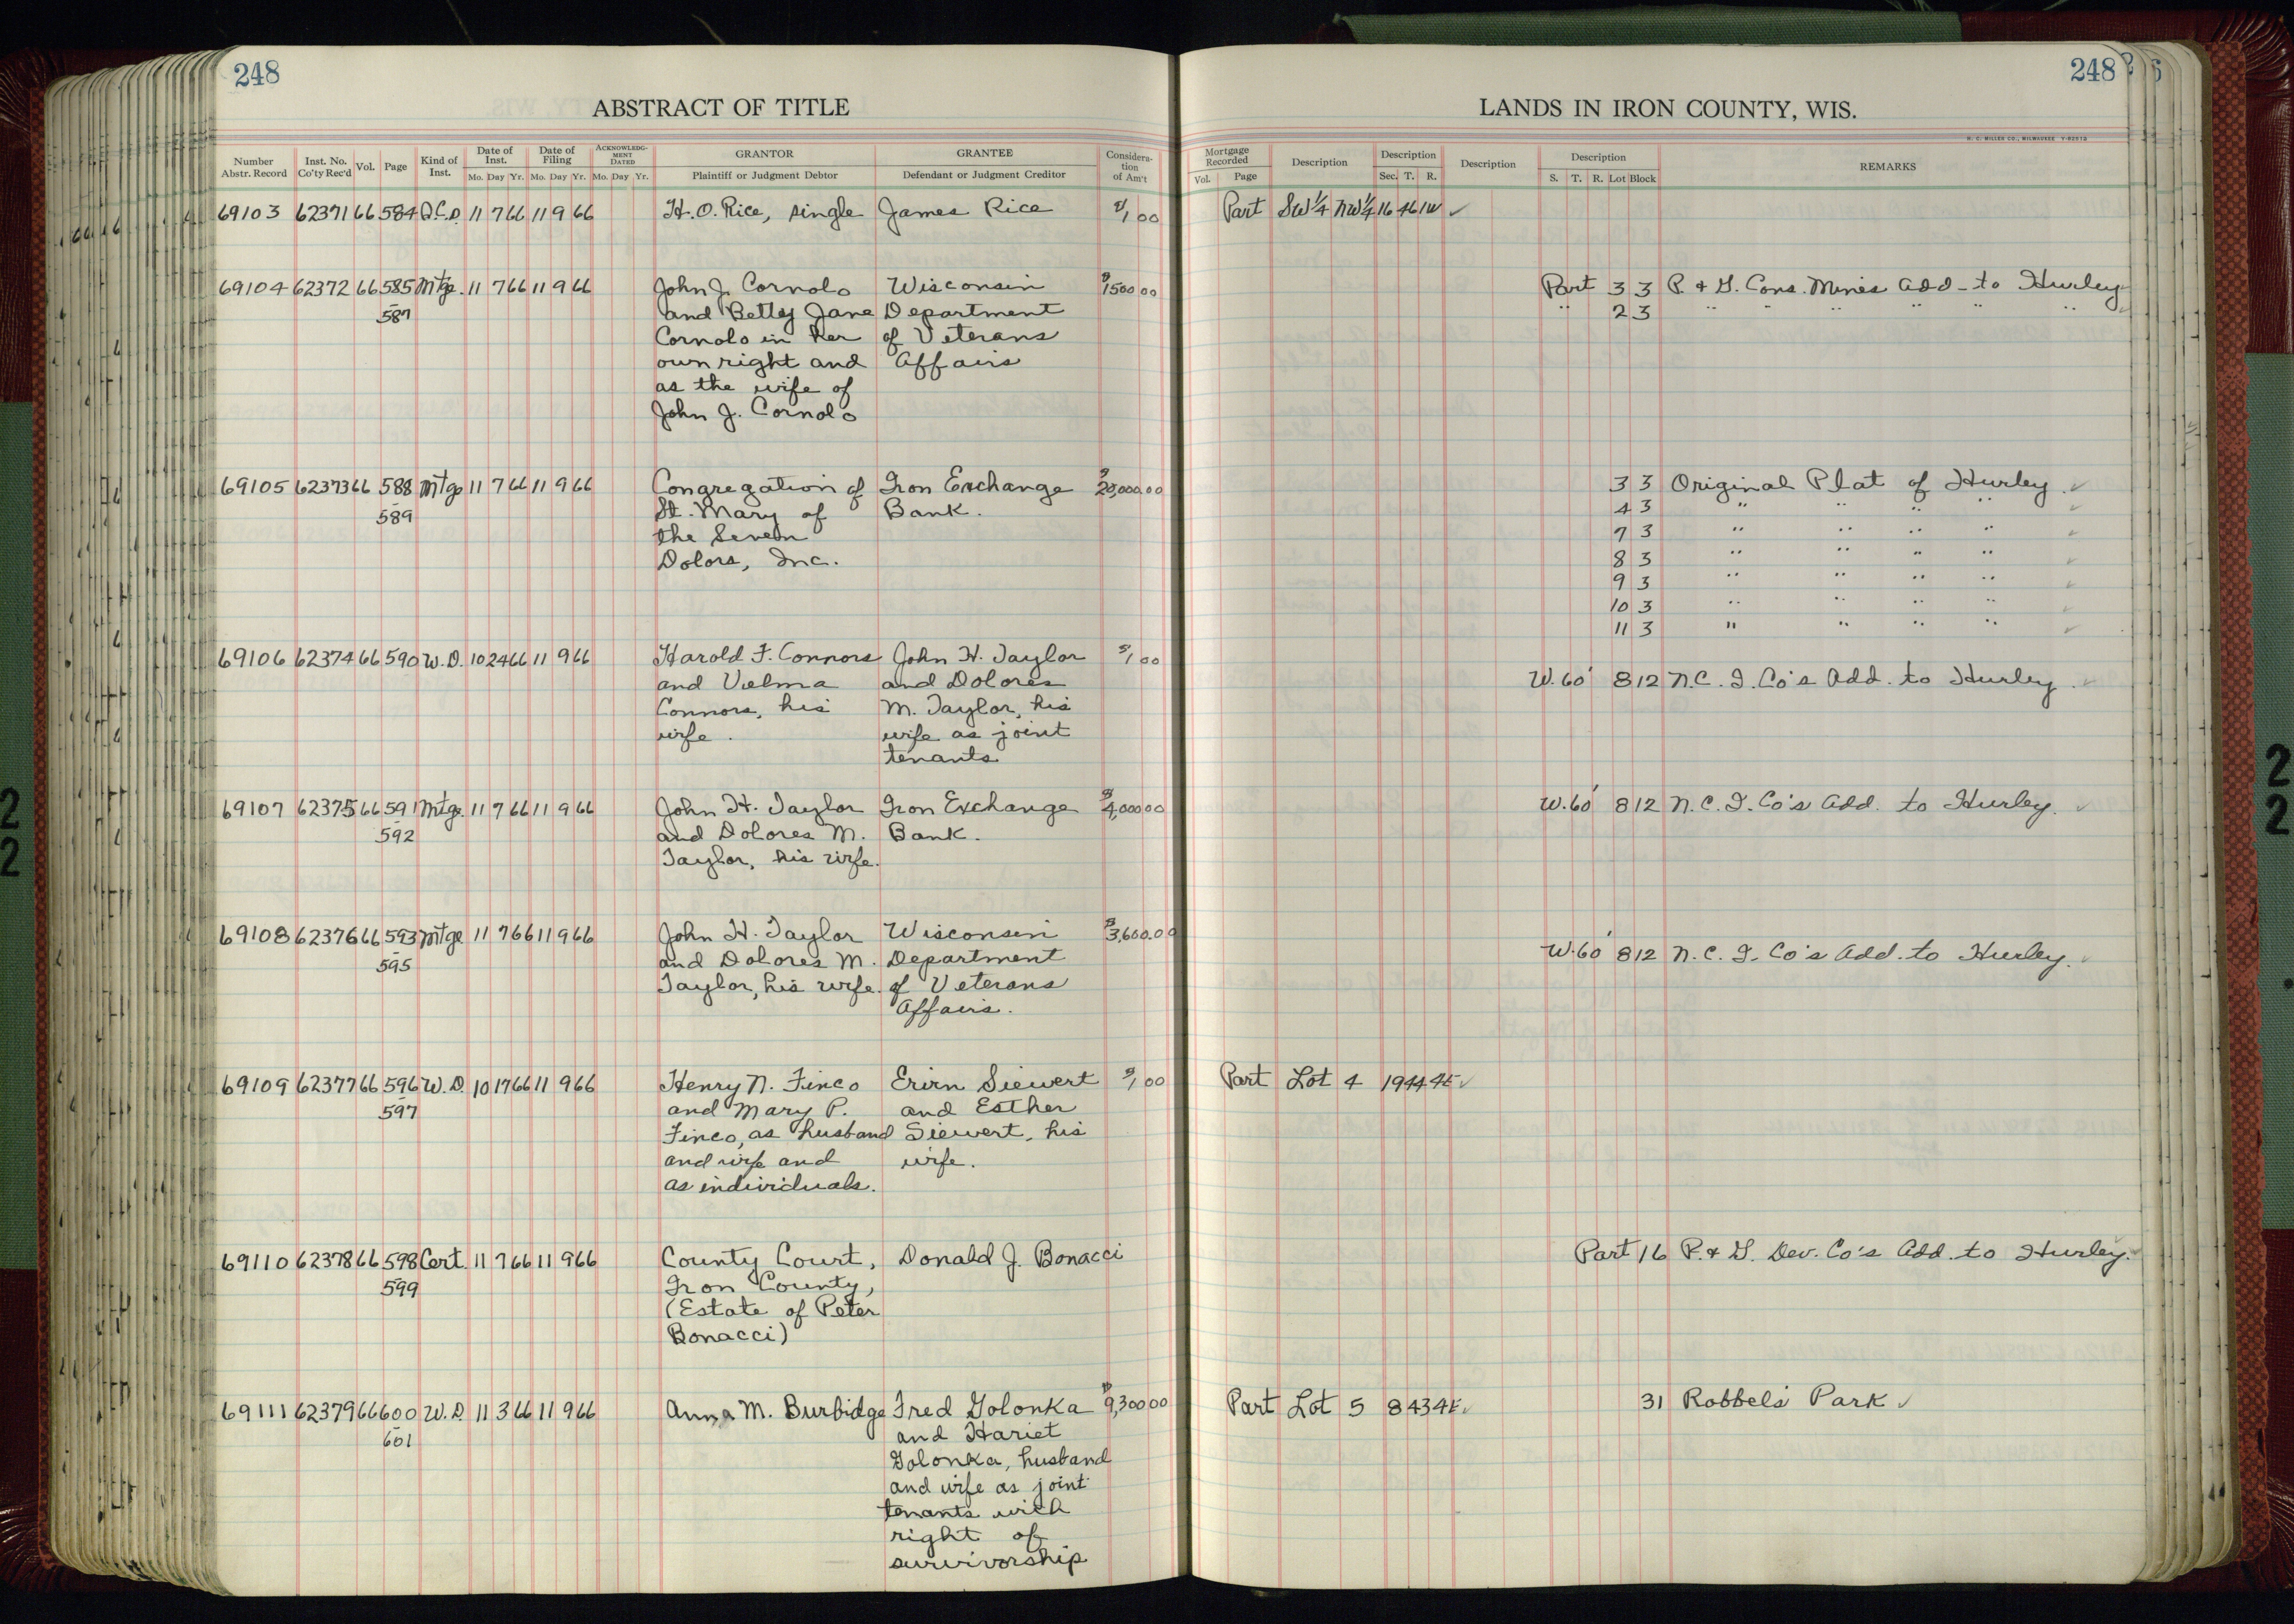 248
ABSTRACT OF TITLE
Number Abstr. Record Inst. No. Co'ty Rec'd Vol. Page Kind of Inst. Date of Inst. Mo. Day Yr. Date of Filing Mo. Day Yr. ACKNOWLEDGMENT DATED Mo. Day Yr. GRANTOR Plaintiff or Judgment Debtor GRANTEE Defendant or Judgment Creditor Consideration of Am't
69103 62371 66 584 Q.C.D. 11 7 66 11 9 66 H.O. Rice, single James Rice $1 00
69104 62372 66 585 Mtge. 11 7 66 11 9 66 John J. Cornolo Wisconsin $1500 00
- 587 and Betty Jane Department
Cornolo in her of Veterans
own right and Affairs
as the wife of
John J. Cornolo
69105 62373 66 588 Mtge 11 7 66 11 9 66 Congregation of Iron Exchange $20,000.00
- 589 St. Mary of Bank.
the Seven
Dolors, Inc.
69106 62374 66 590 W.D. 10 24 66 11 9 66 Harold F. Connors John H. Taylor $1 00
and Velma and Dolores
Connors, his M. Taylor, his
wife. wife as joint
tenants
69107 62375 66 591 Mtge. 11 7 66 11 9 66 John H. Taylor Iron Exchange $4,000 00
- 592 and Dolores M. Bank.
Taylor, his wife.
69108 62376 66 593 Mtge 11 7 66 11 9 66 John H. Taylor Wisconsin $3,600.00
- 595 and Dolores M. Department
Taylor, his wife. of Veterans
Affairs.
69109 62377 66 596 W.D. 10 17 66 11 9 66 Henry N. Finco Ervin Siewert $1 00
- 597 and Mary P. and Esther
Finco, as husband Siewert, his
and wife and wife.
as individuals.
69110 62378 66 598 Cert. 11 7 66 11 9 66 County Court, Donald J. Bonacci
- 599 Iron County,
(Estate of Peter
Bonacci)
69111 62379 66 600 W.D. 11 3 66 11 9 66 Anna M. Burbidge Fred Golonka $9,300 00
- 601 and Hariet
Golonka, husband
and wife as joint
tenants with
right of
survivorship
248
LANDS IN IRON COUNTY, WIS.
H. C. MILLER CO., MILWAUKEE
Mortgage Recorded Vol. Page Description Description Sec. T. R. Description Description S. T. R. Lot Block REMARKS
Part SW 1/4 NW 1/4 16 46 1W ✓
Part 3 3 P. & G. Cons. Mines Add. to Hurley
" 2 3 " " " " " "
3 3 Original Plat of Hurley. ✓
4 3 " " " " ✓
7 3 " " " " ✓
8 3 " " " "
9 3 " " " " ✓
10 3 " " " " ✓
11 3 " " " " ✓
W. 60' 8 12 N.C. I. Co's Add. to Hurley. ✓
W. 60' 8 12 N.C. I. Co's Add. to Hurley. ✓
W. 60' 8 12 N.C. I. Co's Add. to Hurley. ✓
Part Lot 4 19 44 4E ✓
Part 16 P. & G. Dev. Co's Add. to Hurley.
Part Lot 5 8 43 4E ✓ 31 Robbel's Park ✓
2
2
2
2